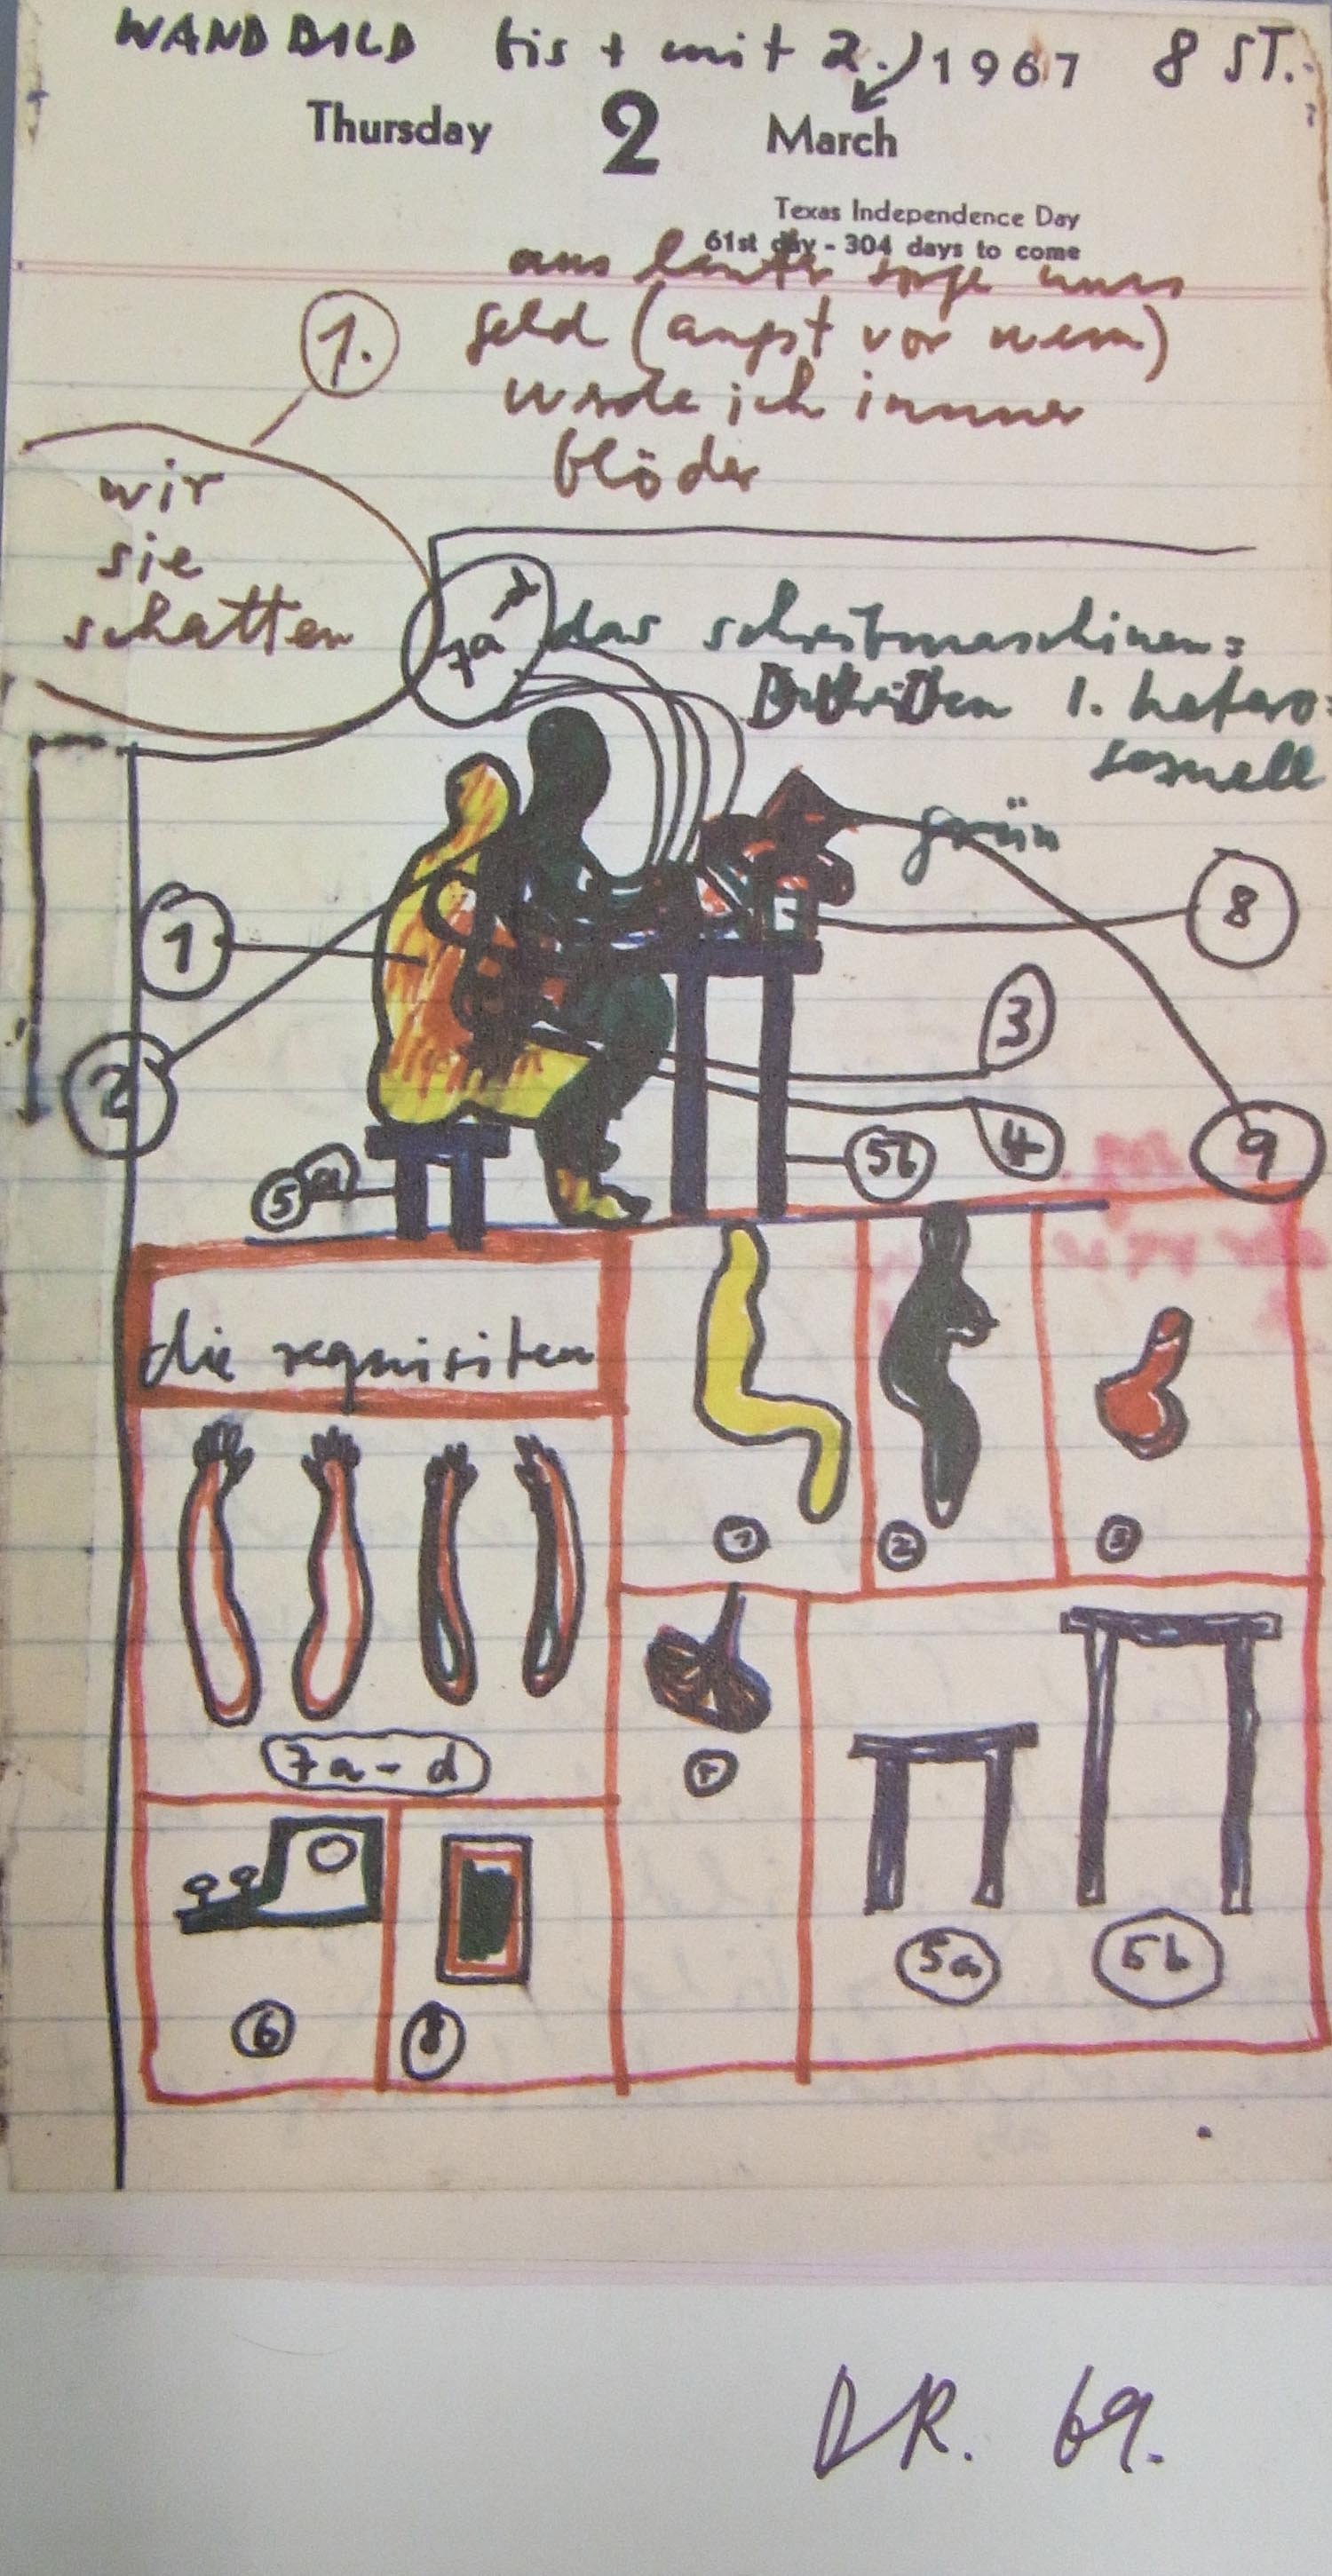 WANDBILD bis + mit 2.) 1967 8 ST.
Thursday 2 March
Texas Independence Day
61st day - 304 days to come
aus lauter sorge ums
geld (angst vor wem)
werde ich immer
blöder
1.
wir
sie
schatten
7a-d
das schreibmaschinen=
1. hetero=
sexuell
grün
1
8
2
3
4
5a
5b
9
die requisiten
1
2
3
7a-d
4
5a
5b
6
8
DR. 69.